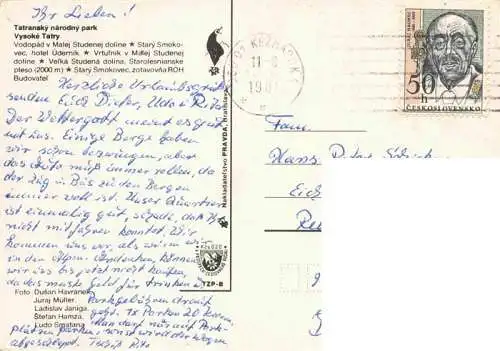 Ihr Lieben!
Tatranský národný park
Vysoké Tatry
Vodopád v Malej Studenej doline ★ Starý Smoko-
vec, hotel Úderník ★ Vrtuľník v Malej Studenej
doline ★ Veľká Studená dolina, Starolesnianske
pleso (2000 m) ★ Starý Smokovec, zotavovňa ROH
Budovateľ
Herzliche Urlaubsgrüße
senden Euch Dieter, Udo + Rita
Der Wettergott meint es gut
mit uns. Einige Berge haben
wir schon bezwungen, aber
das Auto muß immer rollen, da
der Zug + Bus zu den Bergen
immer voll ist. Unser Quartier
ist einmalig gut, schade, daß Ihr
nicht mitfahren konntet. Wir
kommen uns vor, als wären wir
in den Alpen. Andenken können
wir uns bis jetzt nicht kaufen,
da das meiste Geld für trinken +
Parkgebühren drauf
geht. 1x Parken 20 Kronen
Man darf nur auf Park-
plätzen parken, sonst wird der Wagen
abgeschleppt. Tschüß Rita
Foto: Dušan Havránek,
Juraj Müller,
Ladislav Janiga,
Štefan Hamza,
Ludo Smatana
Nakladateľstvo PRAVDA, Bratislava
Kčs 0,20
TZP-B
KEŽMAROK
50
h
ČESKOSLOVENSKO
Fam.
Hans